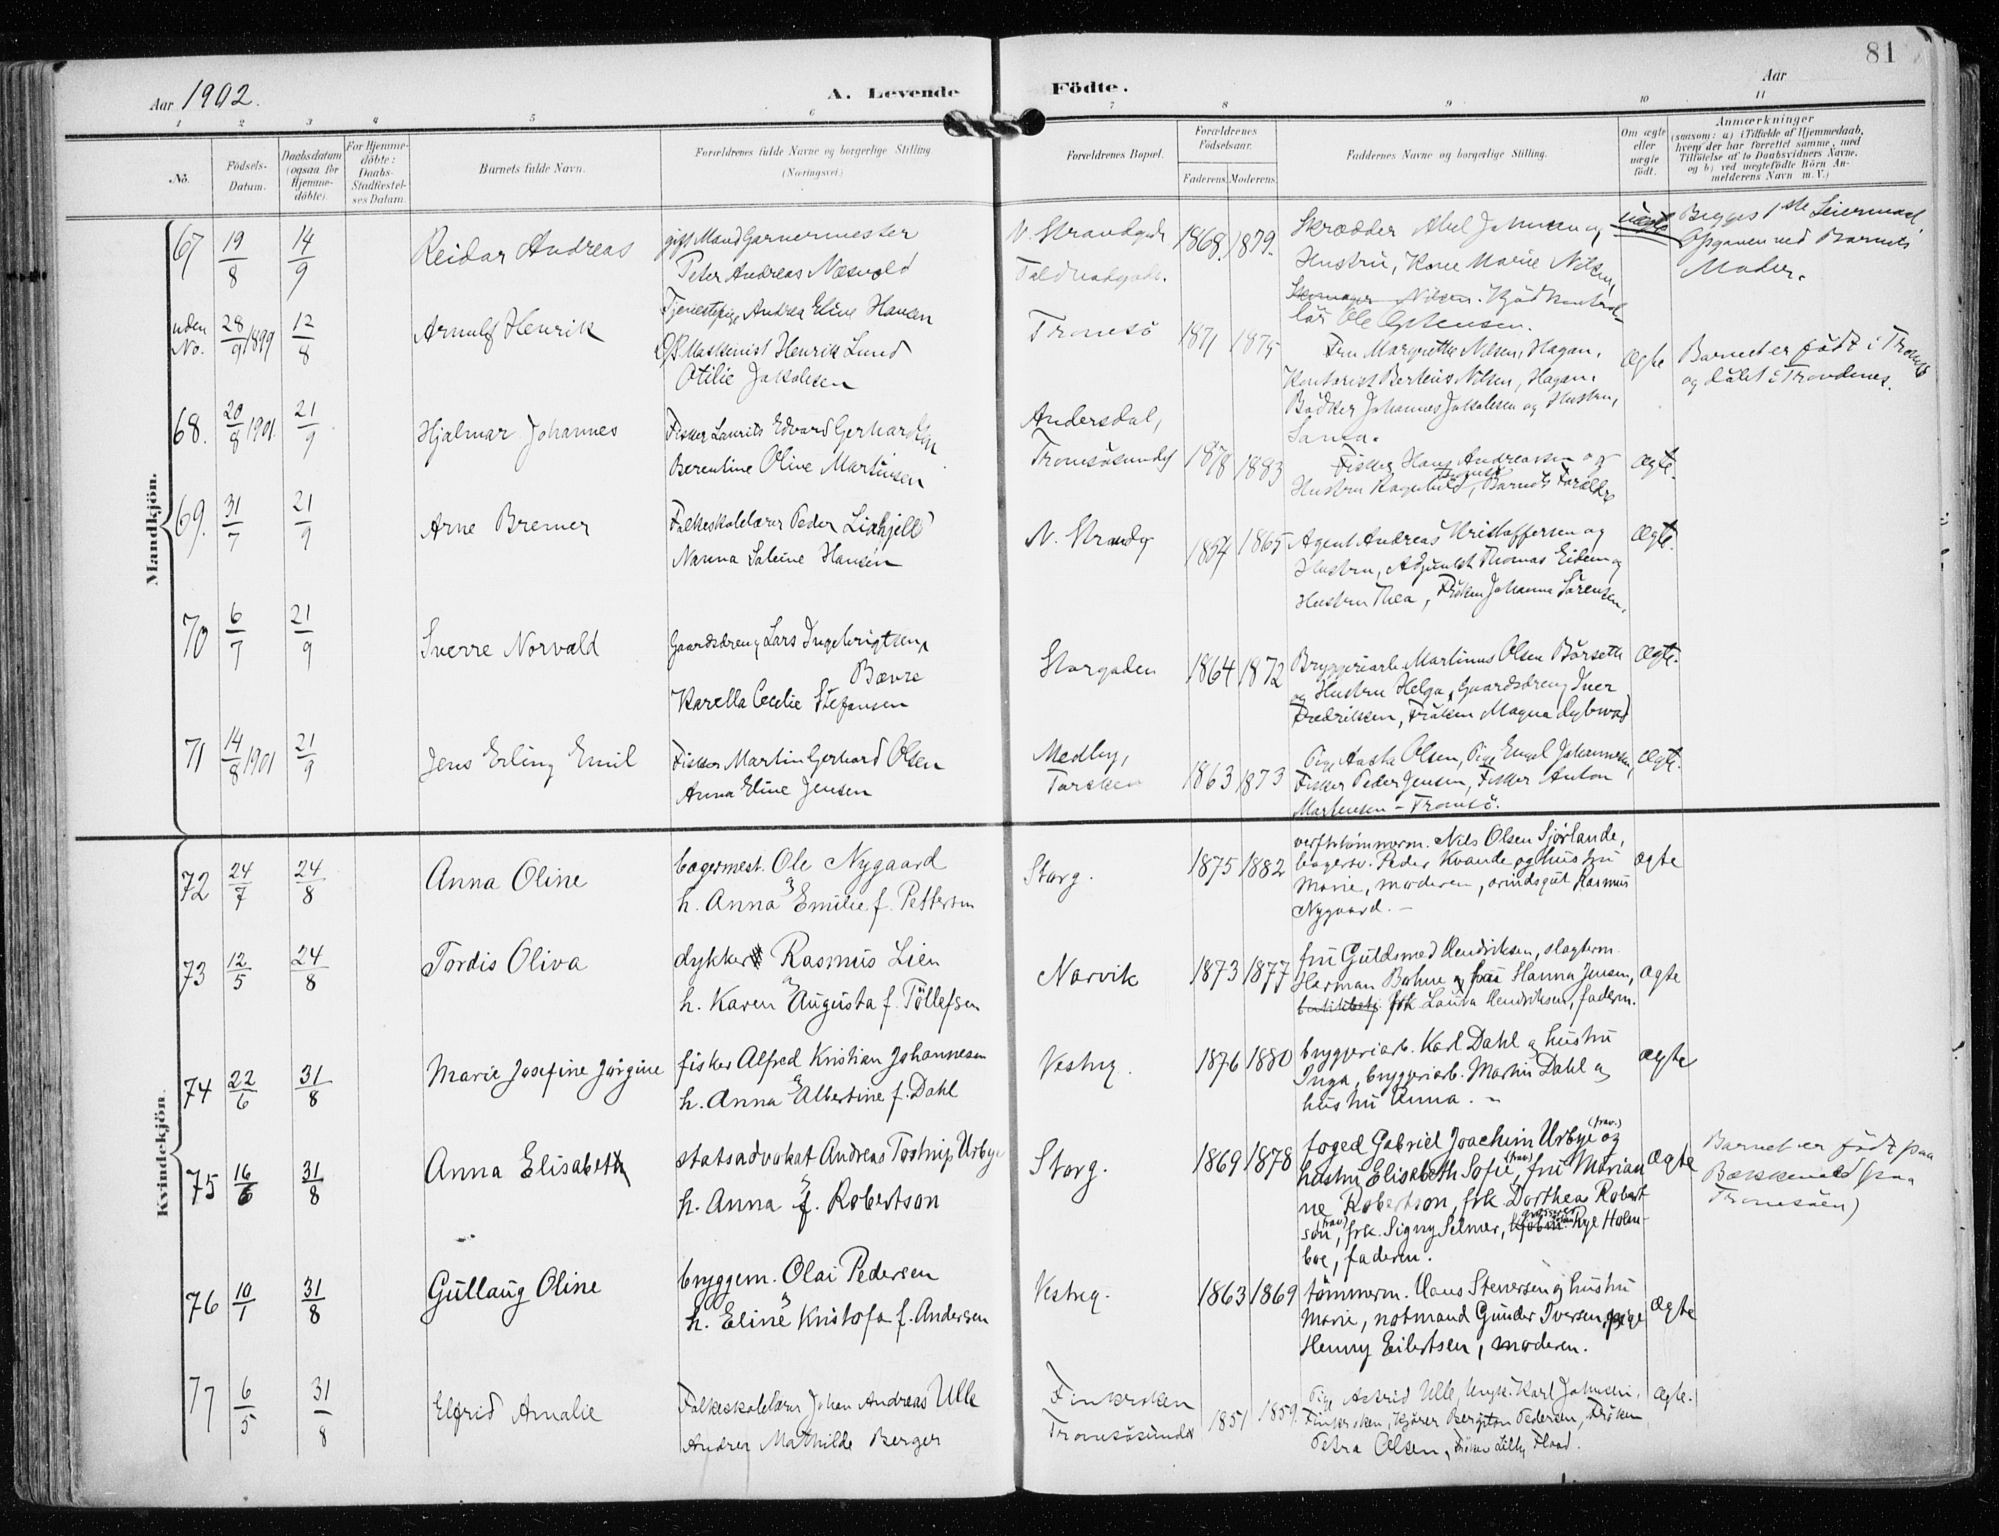 81
Aar 1902.
A. Levende Födte.
Aar
1 2 3 4 5 6 7 8 9 10 11
No.
Födsels-Datum.
Daabsdatum (ogsaa for Hjemme-döbte).
For Hjemme-döbte: Daabs-Stadfæstel-ses Datum.
Barnets fulde Navn.
Forældrenes fulde Navne og borgerlige Stilling. (Næringsvei.)
Forældrenes Bopæl.
Forældrenes Födselsaar.
Faderens. Moderens.
Faddernes Navne og borgerlige Stilling.
Om ægte eller uægte født.
Anmærkninger
(saasom: a) i Tilfælde af Hjemmedaab,
hvem der har forrettet samme, med
Tilföielse af to Daabsvidners Navne,
og b) ved uægtefödte Börn An-
melderens Navn m. V.)
Mandkjön.
67 19/8 14/9 Reidar Andreas
gift Mand Garnermester
Peter Andreas Næsvold
Tjenestepige Andrea Eline Hansen
N. Strandgade
1868. 1879.
Skrædder Abel Johnsen og
Hustru, Kone Marie Nilsen,
Nilsen.
Ole
uægte
Begges 1ste Leiermaal
Opgaven ved Barnets
Moder.
uden No. 28/9 1899 12/8 Arnulf Henrik
Maskinist Henrik Lund
Otilie Jakobsen
Tromsö
1871 1875
Fru Margrethe Nilsen, Hagan,
Kontorist Berteus Nilsen, Hagan.
Bödker Johannes Jakobsen og Hustru,
Sansa.
Ægte
Barnet er født i Tromsö
og döbt i Trondenes.
68. 20/8 1901. 21/9 Hjalmar Johannes
Fisker Laurits Edvard Gerhardsen
Berentine Olive Martinsen
Andersdal,
Tromsösundet
1878 1883
Fisker Hans Andreassen og
Hustru Ragnhild, Barnets Forældre
Ægte.
69. 31/7 21/9 Arne Bremer
Folkeskolelærer Peder Lidkjell
Nanna Saleine Hansen
N. Strandg
1854 1865
Agent Andreas Kristoffersen og
Hustru, Adjunkt Thomas Eidem og
Hustru Thea, Fröken Johanna Sörensen.
Ægte.
70 6/7 21/9 Sverre Norvald
Gaardsdreng Lars Ingebrigtsen
Bævre
Karella Cecilie Stefansen
Storgaden
1864 1872
Bryggeriarb. Martinus Olsen Börseth
og Hustru Helga, Gaardsdreng Iver
Fredriksen, Fröken Magna Dybwad
Ægte.
71 14/8 1901 21/9 Jens Erling Emil
Fisker Martin Gerhard Olsen
Anna Eline Jensen
Medby,
Torsken
1863 1873
Pige Aasta Olsen, Pige Engel Johannesen,
Fisker Peder Jensen, Fisker Anton
Martensen - Tromsö.
Ægte.
Kvindekjön.
72 24/7 24/8 Anna Oline
bagermest. Ole Nygaard
h. Anna Emilie f. Pettersen
Storg.
1875 1882
verftstömmerm. Nils Olsen Sjörlande,
bagersv. Peder Kvande og hustru
Marie, moderen, Rasmus
Nygaard. -
ægte
73 12/5 24/8 Tordis Oliva
dykker Rasmus Lien
h. Karen Augusta f. Töllefsen
Narvik
1873 1877
fru Guldsmed Hendriksen, slagterm.
Herman Bohne og fru Hanna Jensen,
frk Laura Hendriksen, faderen.
ægte
74 22/6 31/8 Marie Josefine Jörgine
fisker Alfred Kristian Johannesen
h. Anna Albertine f. Dahl
Vestreg.
1876 1880
bryggeriarb. Karl Dahl og hustru
Inga, bryggeriarb. Martin Dahl og
hustru Anna. -
ægte
75 16/6 31/8 Anna Elisabeth
statsadvokat Andreas Tostrup Urbye
h. Anna f. Robertson
Storg.
1869 1878
foged Gabriel Joachim Urbye (frav.) og
hustru Elisabeth Sofie (frav), fru Marian
ne Robertson, frk. Dorthea Robert
son (frav), frk. Signy Selmer, Rye Holm-
boe, faderen.
ægte
Barnet er født paa
(paa
Tromsöen)
76 10/1 31/8 Gullaug Oline
bryggem. Olai Pedersen
h. Eline Kristofa f. Andersen
Vestreg.
1863 1869
tömmerm. Hans Steversen og hustru
Marie, notmand Gunder Iversen, pige
Henny Eilertsen, moderen.
Ægte
77 6/5 31/8 Elfrid Amalie
Folkeskolelærer Johan Andreas Ulle
Andrea Mathilde Berger
Finkroken
Tromsösundet
1851 1859.
Pige Astrid Ulle, Ungk. Karl Johnsen,
Finkroken, Pedersen, Fröken
Petra Olsen, Fröken Lilly Flood.
Ægte.